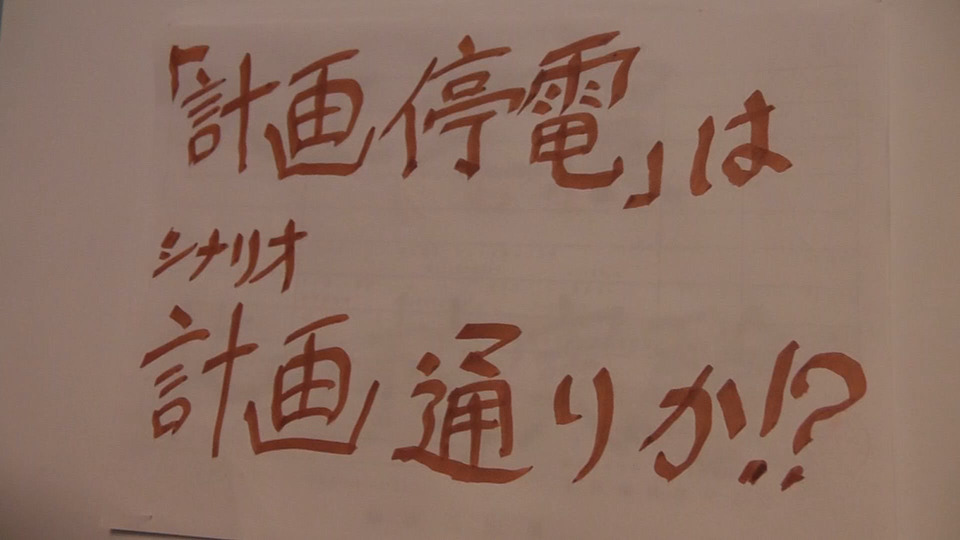 「計画停電」は
シナリオ
計画通りか!?